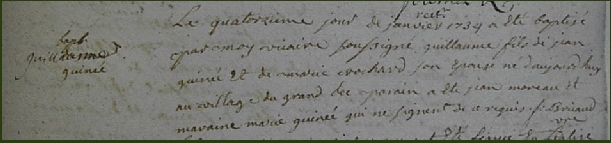 rect.
bapt
guillaume
guinée
Le quatorzieme jour de janvier 1734 a été baptisé
par moy vicaire soussigné guillaume fils de jean
guinée et de marie son epouse né d'aujourd'huy
au village du grand parain a été jean moreau et
maraine marie guinée qui ne signent de ce requis f. Briand
vre